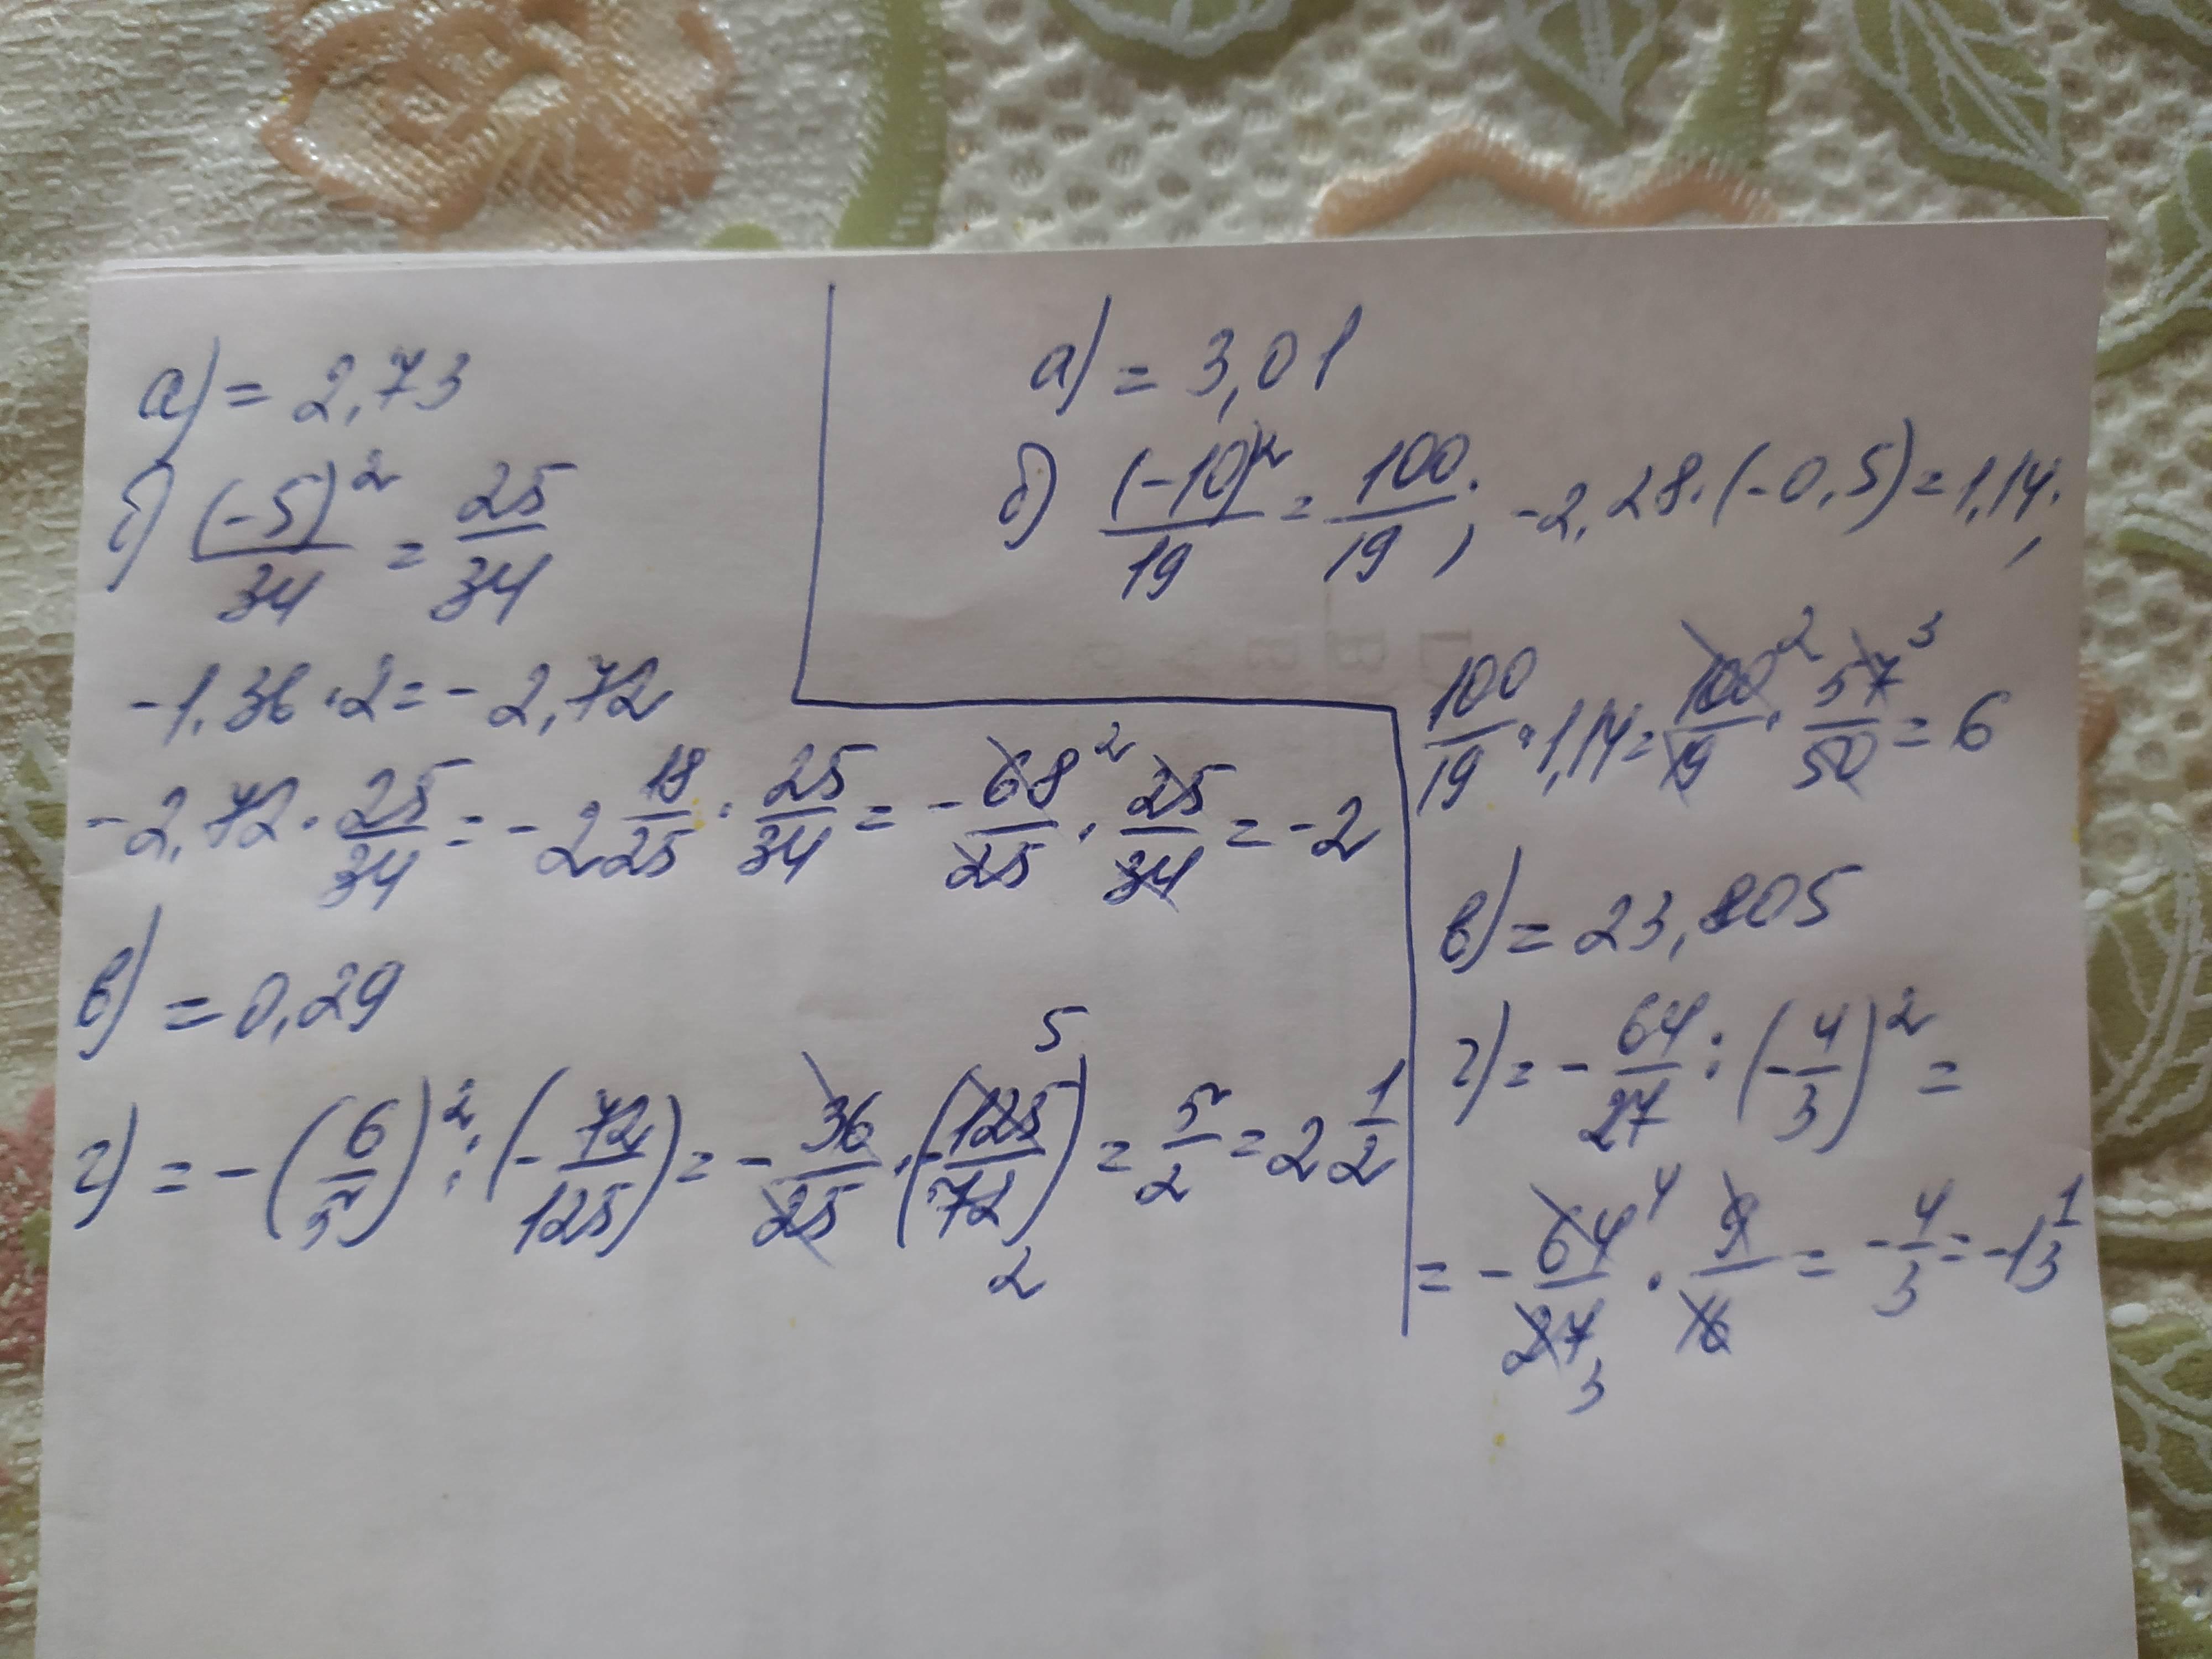 а) = 2,73
б) (-5)²/34 = 25/34
-1,36 · 2 = -2,72
-2,72 · 25/34 = -2 18/25 · 25/34 = -68²/25 · 25/34 = -2
в) = 0,29
г) = -(6/5)² : (-72/125) = -36/25 · (-125/72) = 5/2 = 2 1/2
5
2
а) = 3,01
б) (-10)²/19 = 100/19; -2,28 · (-0,5) = 1,14;
100/19 · 1,14 = 100²/19 · 57³/50 = 6
в) = 23,805
г) = -64/27 : (-4/3)² =
= -64⁴/27 · 9/16 = -4/3 = -1 1/3
3